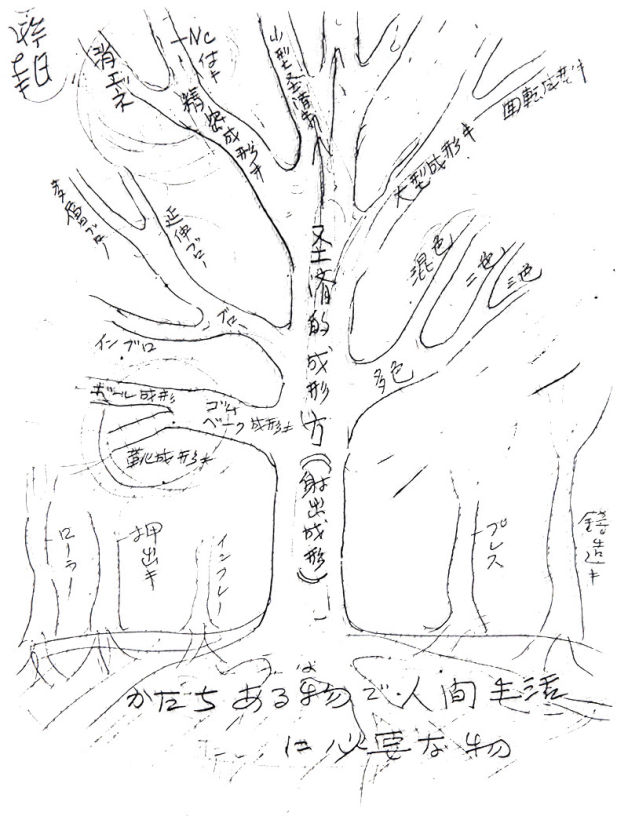 消エネ
NC付キ
精密成形キ
小型経済キ
回転成形キ
大型成形キ
多層ブロー
延伸ブロー
ブロー
インブロ
混色
二色
三色
多色
ボール成形
ゴム
ベーク成形キ
靴成形キ
圣済的成形方(射出成形)
ローラー
押出キ
インフレー
プレス
鋳造キ
かたちある物で人間生活
は
に必要な物